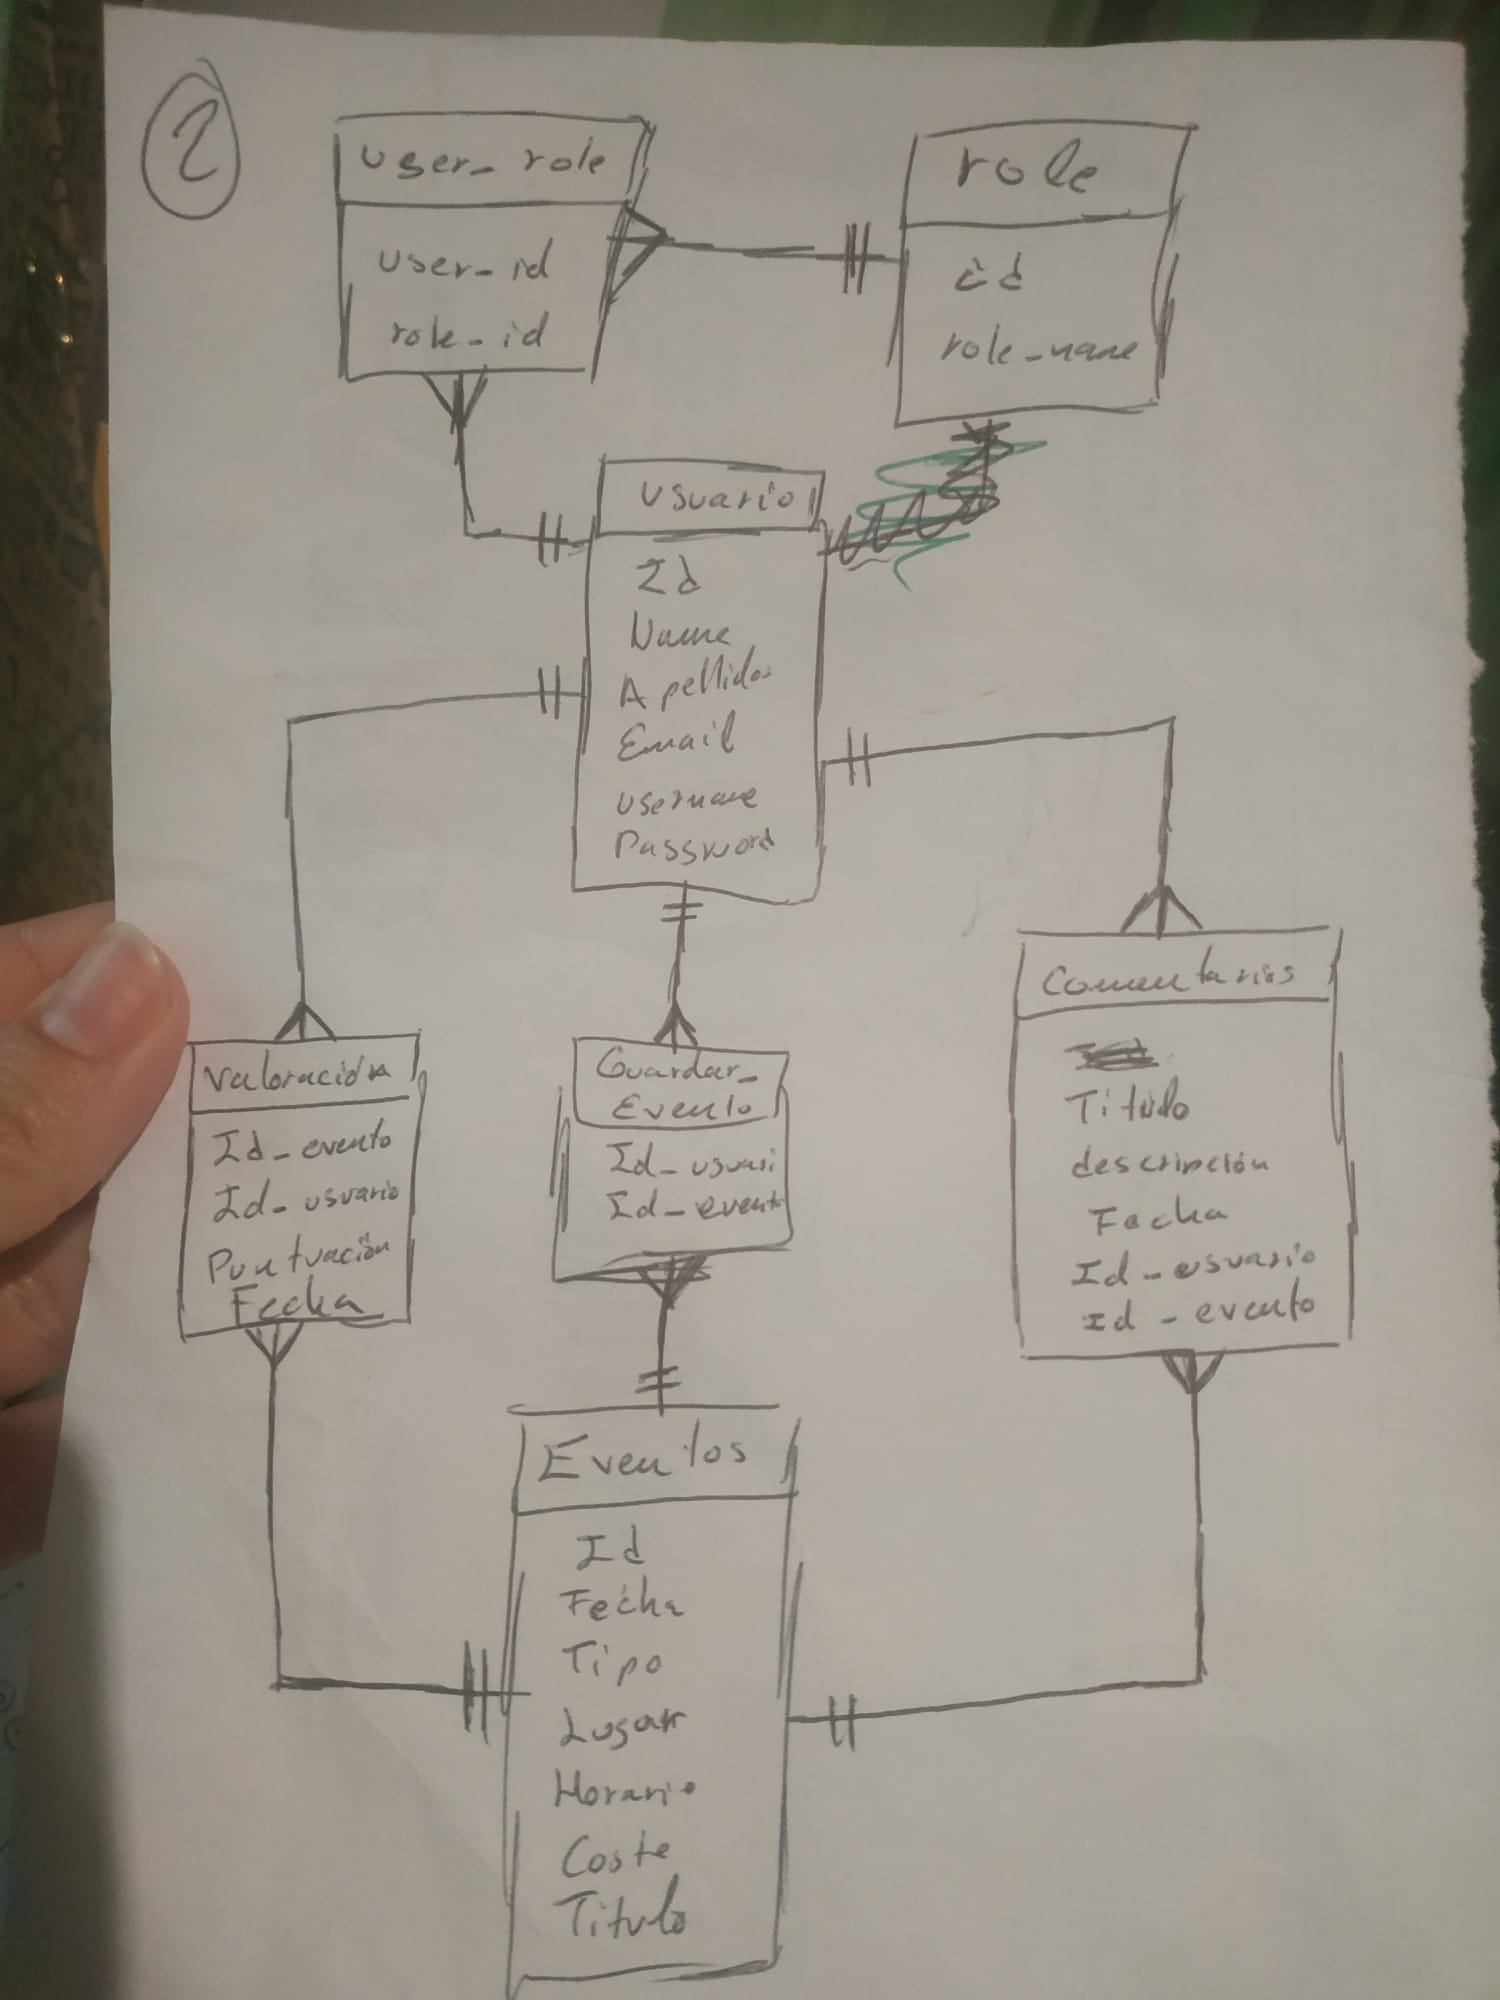 2
user_role
user_id
role_id
role
id
role_name
Usuario
Id
Name
Apellidos
Email
username
Password
Valoración
Id_evento
Id_usuario
Puntuación
Fecha
Guardar_
Evento
Id_usuari
Id_evento
Comentarios
Titulo
descripción
Fecha
Id_usuario
Id_evento
Eventos
Id
Fecha
Tipo
Lugar
Horario
Coste
Titulo